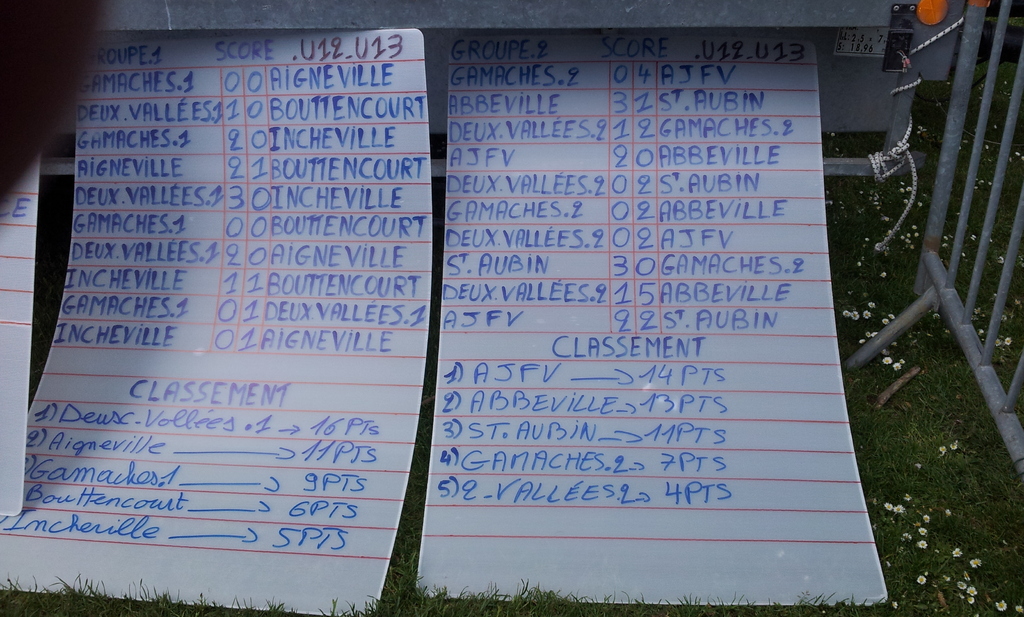 GROUPE.1 SCORE .U12_U13
GAMACHES.1 0 0 AIGNEVILLE
DEUX.VALLÉES.1 1 0 BOUTTENCOURT
GAMACHES.1 2 0 INCHEVILLE
AIGNEVILLE 2 1 BOUTTENCOURT
DEUX.VALLÉES.1 3 0 INCHEVILLE
GAMACHES.1 0 0 BOUTTENCOURT
DEUX.VALLÉES.1 2 0 AIGNEVILLE
INCHEVILLE 1 1 BOUTTENCOURT
GAMACHES.1 0 1 DEUX VALLÉES.1
INCHEVILLE 0 1 AIGNEVILLE
CLASSEMENT
1) Deux.Vallées.1 → 16 PTS
2) Aigneville → 11 PTS
) Gamaches.1 → 9 PTS
Bouttencourt → 6 PTS
) Incheville → 5 PTS
GROUPE.2 SCORE .U12_U13
GAMACHES.2 0 4 AJFV
ABBEVILLE 3 1 ST.AUBIN
DEUX.VALLÉES.2 1 2 GAMACHES.2
AJFV 2 0 ABBEVILLE
DEUX.VALLÉES.2 0 2 ST.AUBIN
GAMACHES.2 0 2 ABBEVILLE
DEUX.VALLÉES.2 0 2 AJFV
ST.AUBIN 3 0 GAMACHES.2
DEUX.VALLÉES.2 1 5 ABBEVILLE
AJFV 2 2 ST.AUBIN
CLASSEMENT
1) AJFV → 14 PTS
2) ABBEVILLE → 13 PTS
3) ST.AUBIN → 11 PTS
4) GAMACHES.2 → 7 PTS
5) 2_VALLÉES.2 → 4 PTS
CE